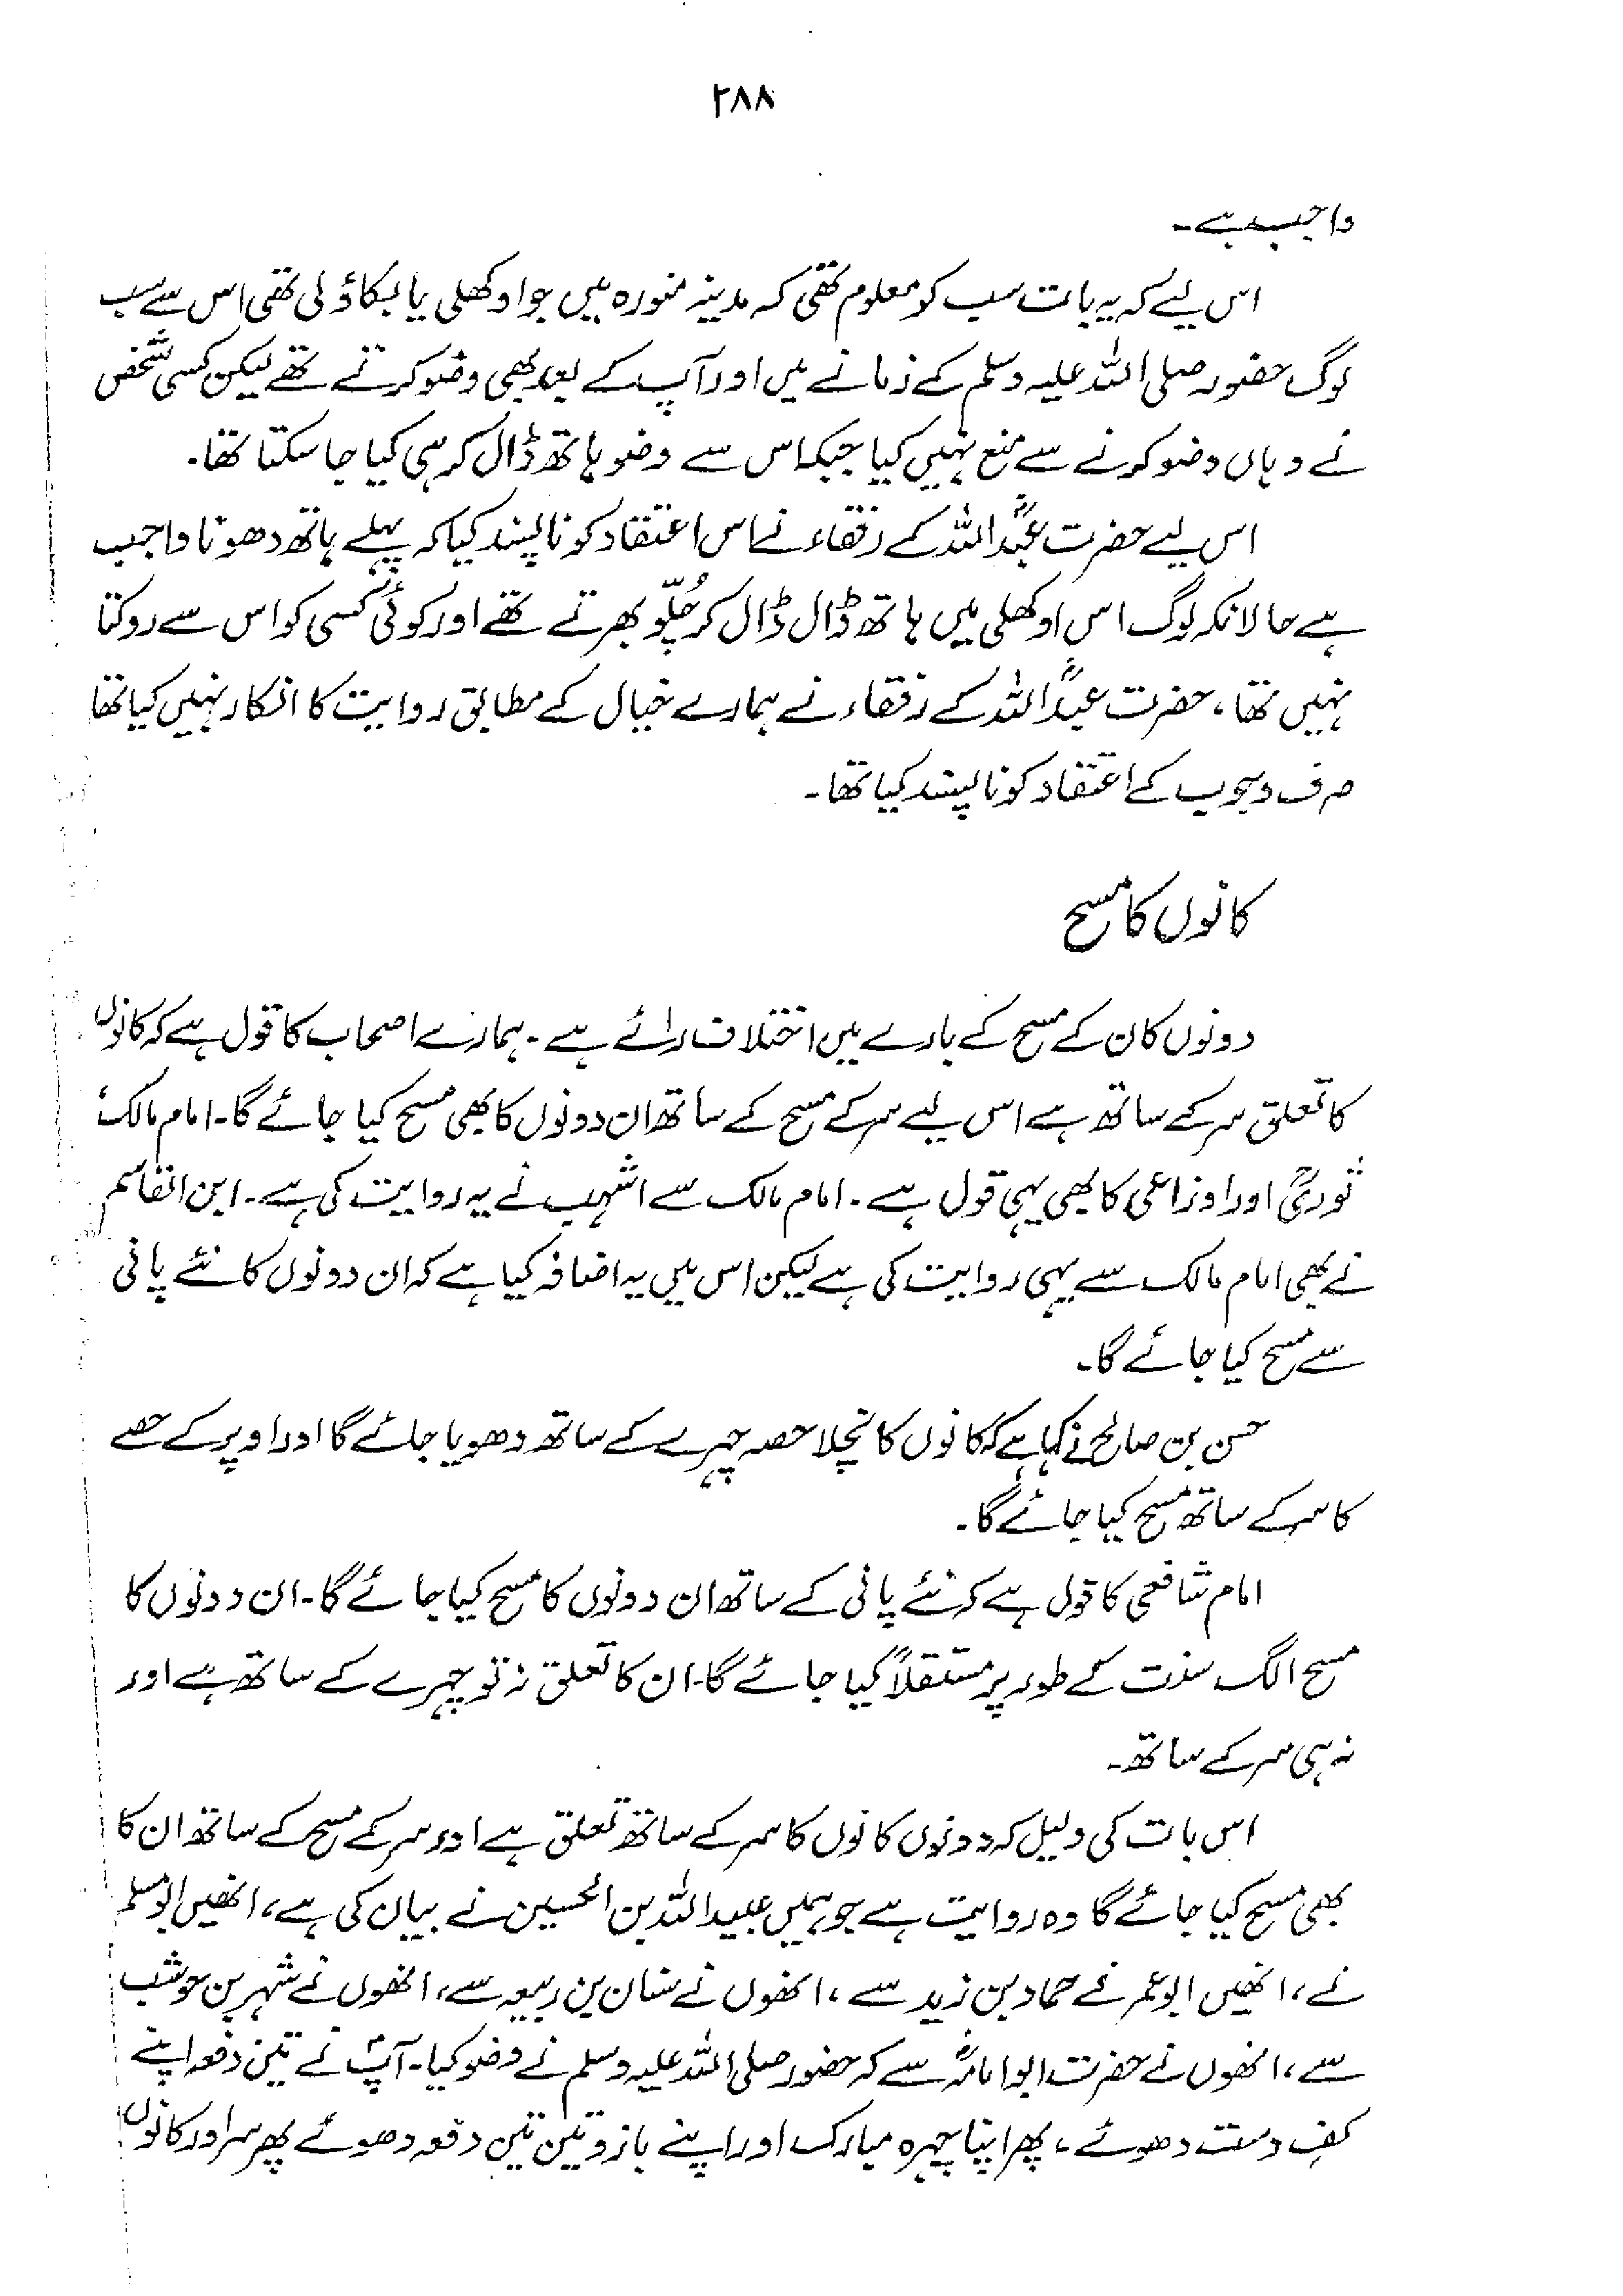 ۲۸۸
واجب ہے۔
اس لیے کہ یہ بات سب کو معلوم تھی کہ مدینہ منورہ میں جو اوکھلی یا لبکاؤلی تھی اس سے سب
لوگ حضور صلی اللہ علیہ وسلم کے زمانے میں اور آپ کے بعد بھی وضو کرتے تھے لیکن کسی شخص
نے وہاں وضو کرنے سے منع نہیں کیا جبکہ اس سے وضو ہاتھ ڈال کر ہی کیا جا سکتا تھا۔
اس لیے حضرت عبدؓاللہ کے رفقاء نے اس اعتقاد کو ناپسند کیا کہ پہلے ہاتھ دھونا واجب
ہے حالانکہ لوگ اس اوکھلی میں ہاتھ ڈال ڈال کر چُلّو بھرتے تھے اور کوئی کسی کو اس سے روکتا
نہیں تھا، حضرت عبدؓاللہ کے رفقاء نے ہمارے خیال کے مطابق روایت کا انکار نہیں کیا تھا
صرف وجوب کے اعتقاد کو ناپسند کیا تھا۔
کانوں کا مسح
دونوں کان کے مسح کے بارے میں اختلاف رائے ہے۔ ہمارے اصحاب کا قول ہے کہ کانوں
کا تعلق سر کے ساتھ ہے اس لیے سر کے مسح کے ساتھ ان دونوں کا بھی مسح کیا جائے گا۔ امام مالکؒ
ثوریؒ اور اوزاعی کا بھی یہی قول ہے۔ امام مالک سے اشہب نے یہ روایت کی ہے۔ ابن القاسم
نے بھی امام مالک سے یہی روایت کی ہے لیکن اس میں یہ اضافہ کیا ہے کہ ان دونوں کا نئے پانی
سے مسح کیا جائے گا۔
حسن بن صالح نے کہا ہے کہ کانوں کا نچلا حصہ چہرے کے ساتھ دھویا جائے گا اور اوپر کے حصے
کا سر کے ساتھ مسح کیا جائے گا۔
امام شافعی کا قول ہے کہ نئے پانی کے ساتھ ان دونوں کا مسح کیا جائے گا۔ ان دونوں کا
مسح الگ سنت کے طور پر مستقلاً کیا جائے گا۔ ان کا تعلق نہ تو چہرے کے ساتھ ہے اور
نہ ہی سر کے ساتھ۔
اس بات کی دلیل کہ دونوں کانوں کا سر کے ساتھ تعلق ہے اور سر کے مسح کے ساتھ ان کا
بھی مسح کیا جائے گا وہ روایت ہے جو ہمیں عبیداللہ بن الحسین نے بیان کی ہے، انھیں ابومسلم
نے، انھیں ابوعمر نے حماد بن زید سے، انھوں نے سنان بن ربیعہ سے، انھوں نے شہر بن حوشب
سے، انھوں نے حضرت ابوامامہؓ سے کہ حضور صلی اللہ علیہ وسلم نے وضو کیا۔ آپؐ نے تین دفعہ اپنے
کفِ دست دھوئے، پھر اپنا چہرہ مبارک اور اپنے بازو تین تین دفعہ دھوئے پھر سر اور کانوں